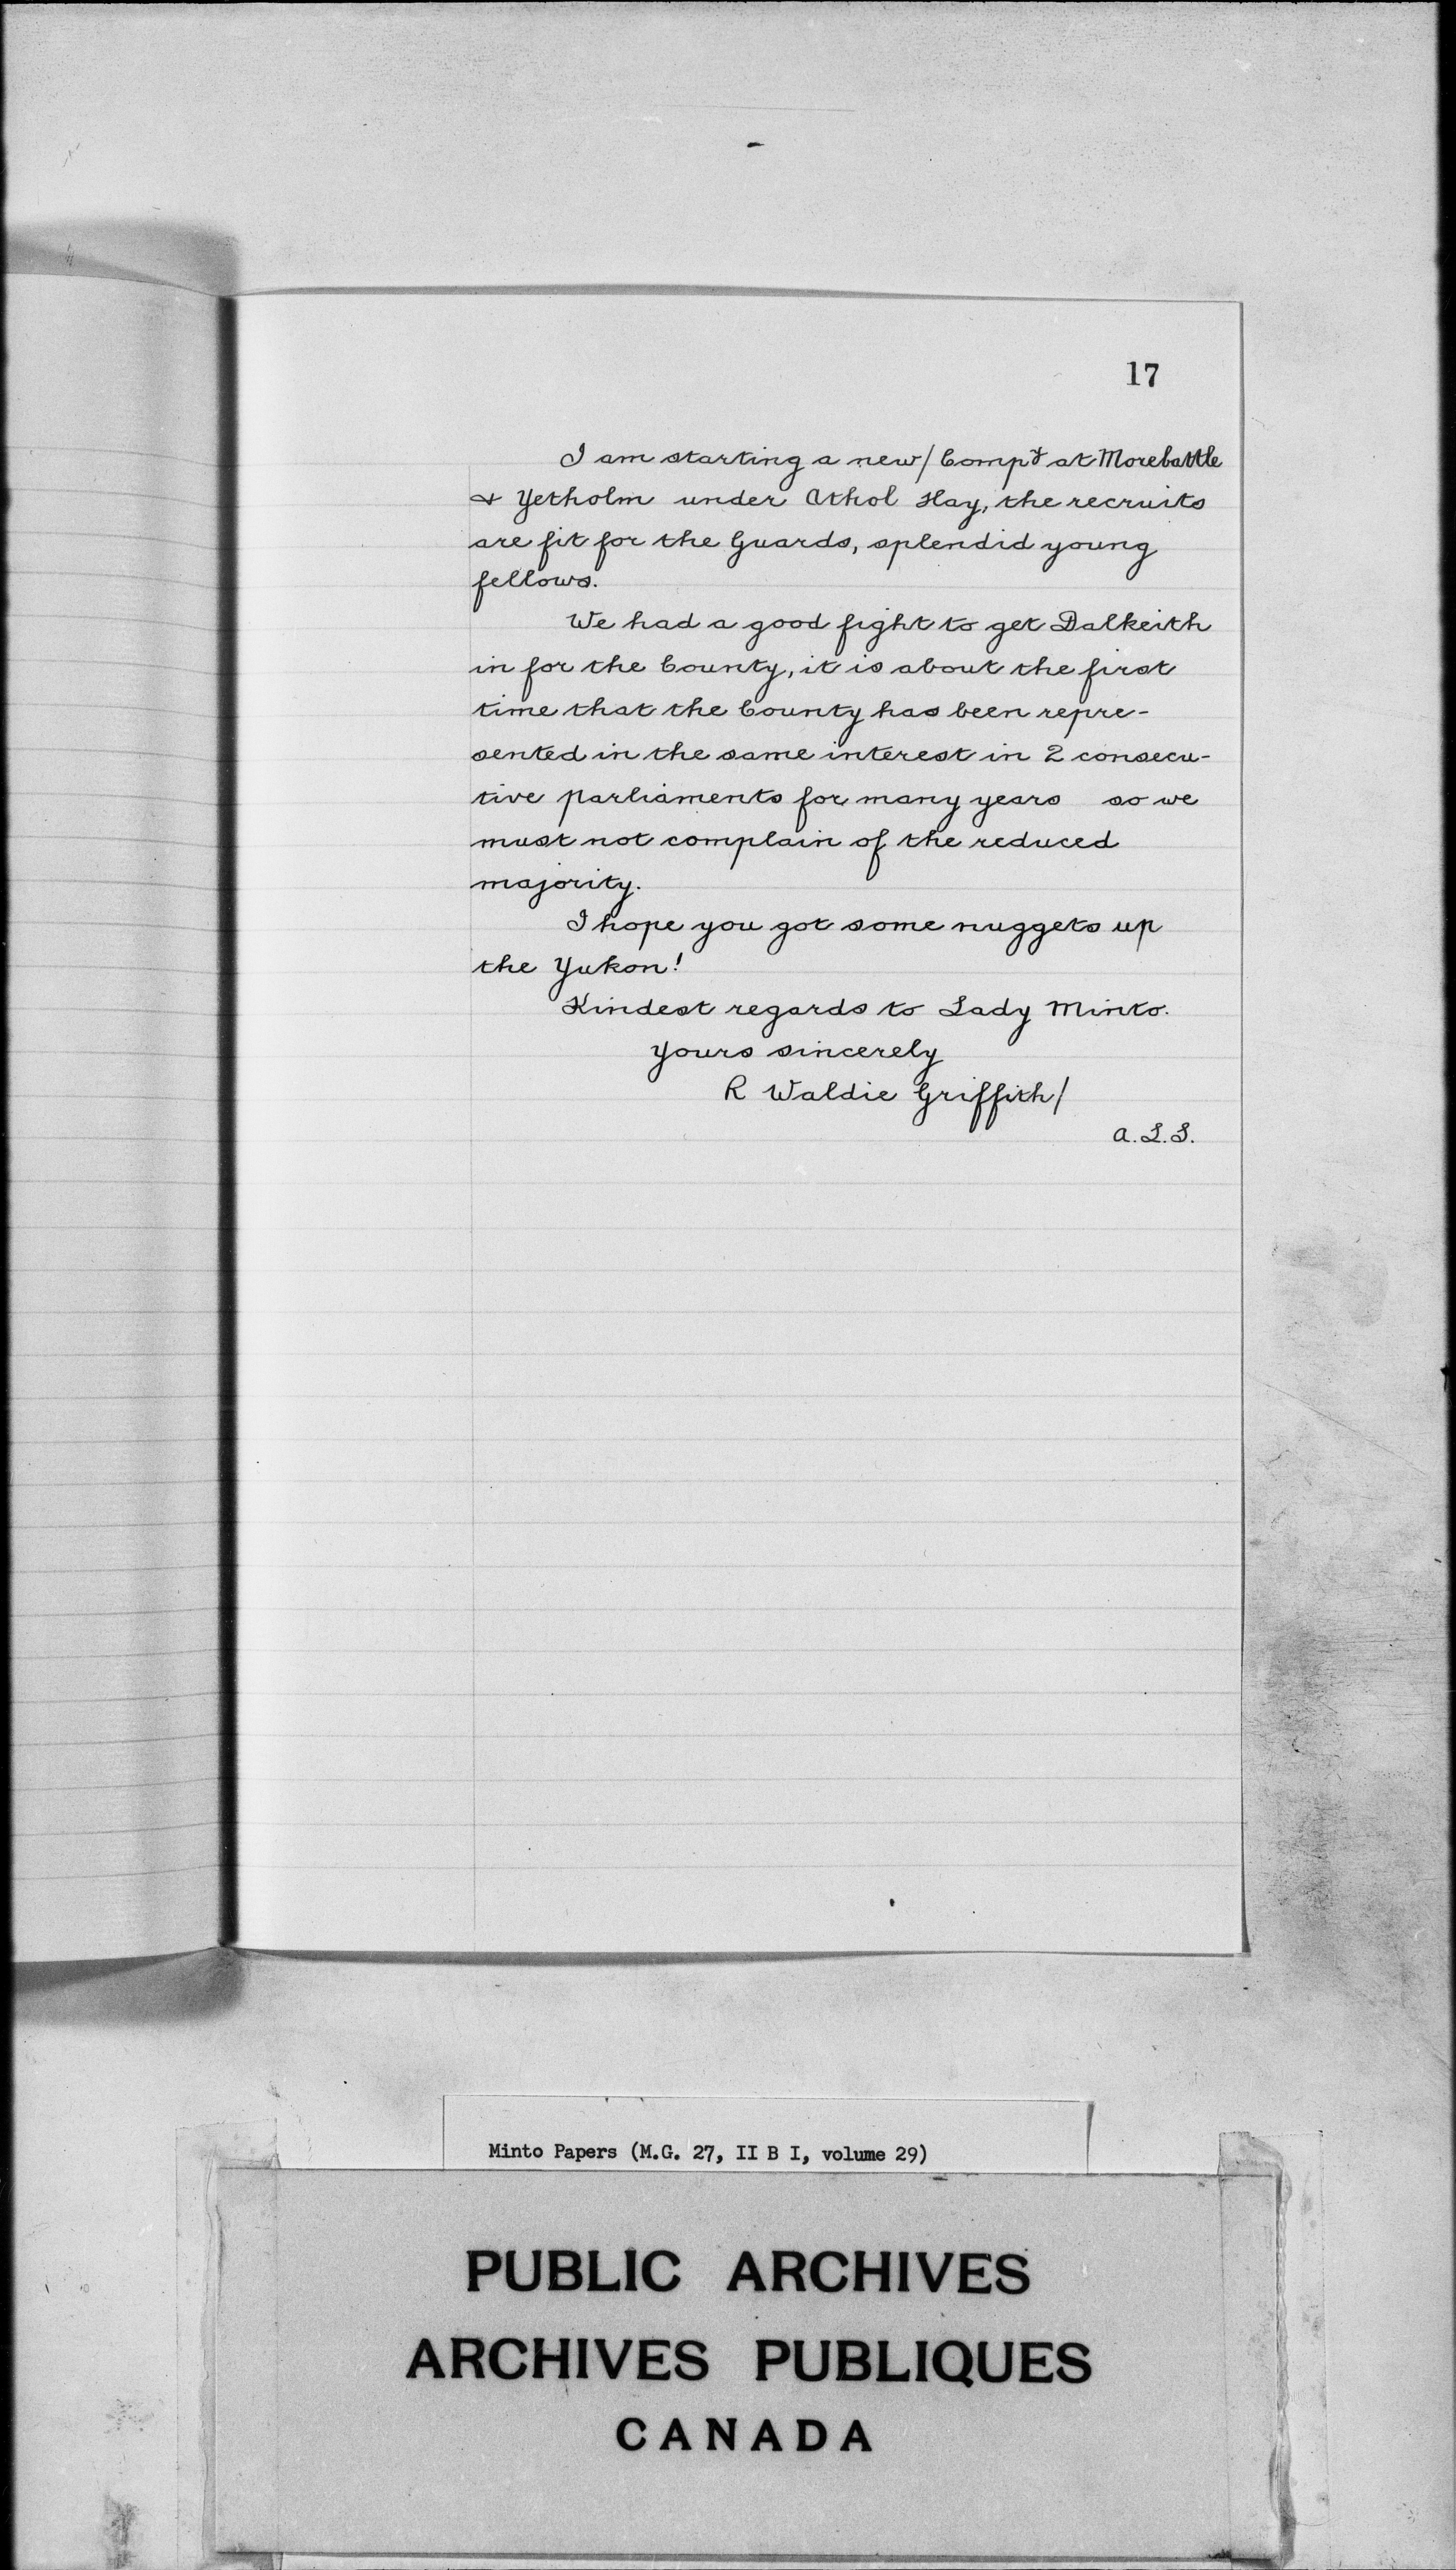 17
I am starting a new/ Compy at Morebattle
& Yetholm under Athol Hay, the recruits
are fit for the Guards, splendid young
fellows.
We had a good fight to get Dalkeith
in for the County, it is about the first
time that the County has been repre-
sented in the same interest in 2 consecu-
tive parliaments for many years so we
must not complain of the reduced
majority.
I hope you got some nuggets up
the Yukon!
Kindest regards to Lady Minto.
Yours sincerely
R Waldie Griffith/
A.L.S.
Minto Papers (M.G. 27, II B I, volume 29)
PUBLIC ARCHIVES
ARCHIVES PUBLIQUES
CANADA